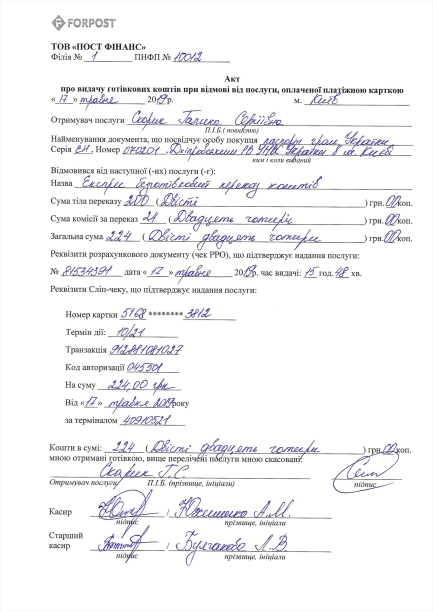 FORPOST
ТОВ «ПОСТ ФІНАНС»
Філія № 1 ПНФП № 10012
Акт
про видачу готівкових коштів при відмові від послуги, оплаченої платіжною карткою
« 17 » травня 2019р. м. Київ
Отримувач послуги Скорик Галина Сергіївна
П.І.Б.( повністю)
Найменування документа, що посвідчує особу покупця паспорт гром. України
Серія ЕН, Номер Дніпровським РУ України в м. Києві
ким і коли виданий
Відмовився від наступної (-их) послуги (-г):
Назва Експрес безготівковий переказ коштів
Сума тіла переказу 200 (Двісті ) грн. 00 коп.
Сума комісії за переказ 24 (Двадцять чотири ) грн. 00 коп.
Загальна сума 224 (Двісті двадцять чотири ) грн. 00 коп.
Реквізити розрахункового документу (чек РРО), що підтверджує надання послуги:
№ 81534391 дата « 17 » травня 2019р. час видачі: 15 год. 48 хв.
Реквізити Сліп-чеку, що підтверджує надання послуги:
Номер картки 5168 ******** 3812
Термін дії: 10/21
Транзакція 912881081027
Код авторизації 045301
На суму 224,00 грн
Від «17» травня 2019року
за терміналом 40910521
Кошти в сумі: 224 (Двісті двадцять чотири ) грн. 00 коп.
мною отримані готівкою, вище перелічені послуги мною скасовані:
Скорик Г.С.
Отримувач послуги П.І.Б. (прізвище, ініціали) підпис
Касир / Южешенко А.М.
підпис прізвище, ініціали
Старший
касир / Булгакова Л.В.
підпис прізвище, ініціали